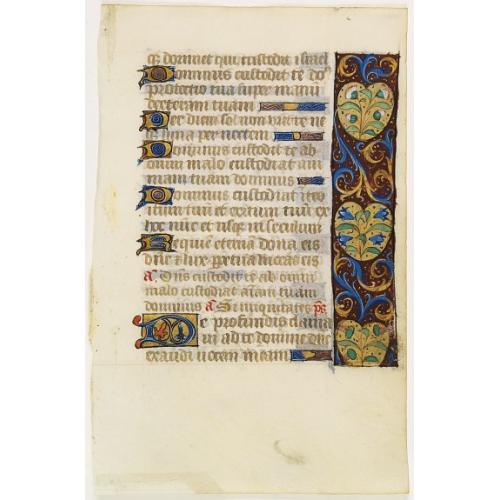 qui custodit isrl
Dominus custodit te do
protectio tua super manu
dexteram tuam
Per diem sol non uret te ne
luna per noctem
Dominus custodit te ab
omni malo custodiat ani
mam tuam dominus
Dominus custodiat
tuum et exitum tuu ex
hoc nuc et usq in seculum
Requie eterna dona eis
dne lux perpetua luceat eis
a Dns custodit te ab omni
malo custodiat aiam tuam
dominus a Si iniquitates ps
De profundis clama
ui ad te domine dne
exaudi uocem meam